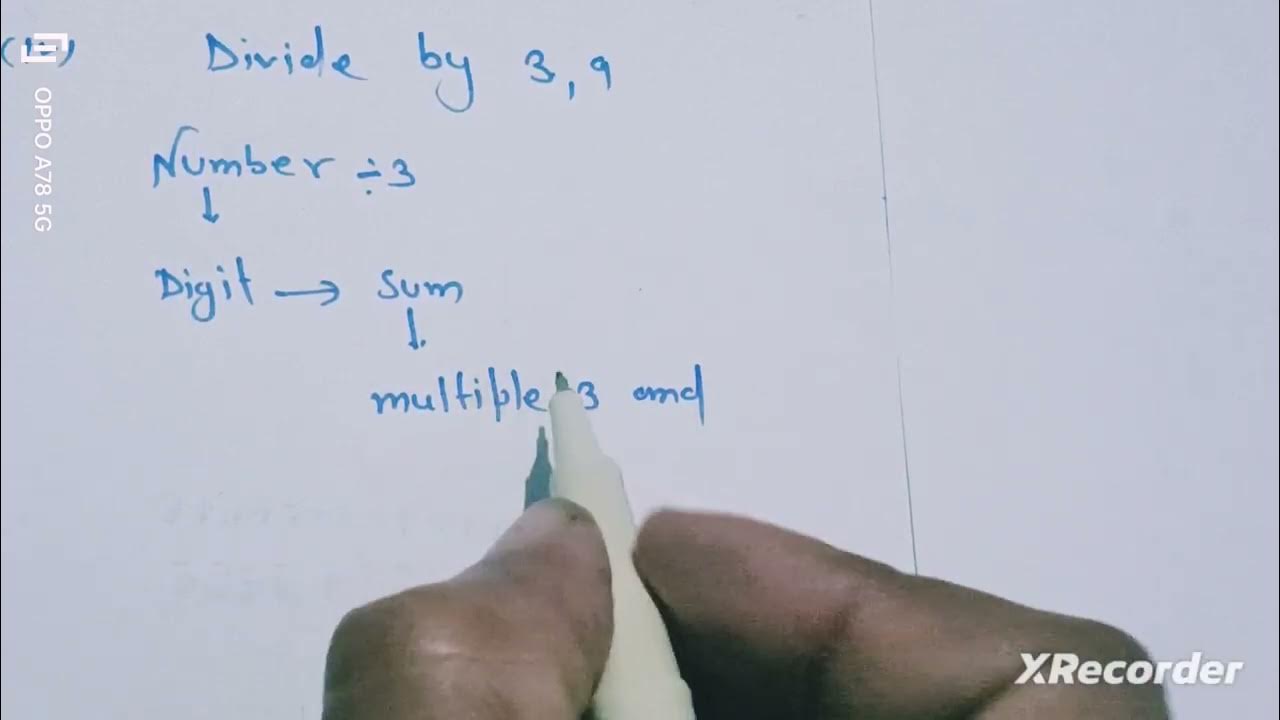 Divide by 3, 9
Number ÷3
↓
Digit → sum
↓
multiple 3 and
OPPO A78 5G
XRecorder